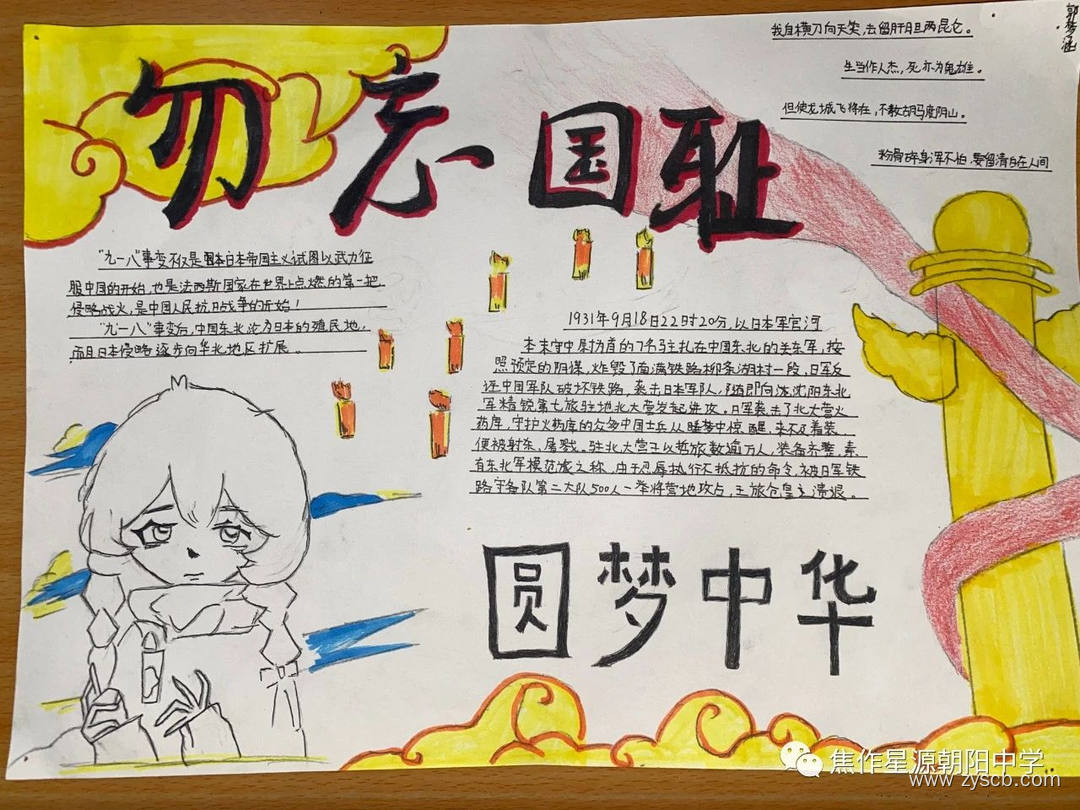 郭梦涵
我自横刀向天笑，去留肝胆两昆仑。
生当作人杰，死亦为鬼雄。
但使龙城飞将在，不教胡马度阴山。
粉骨碎身浑不怕，要留清白在人间
勿忘国耻
"九一八"事变不仅是日本帝国主义试图以武力征
服中国的开始，也是法西斯国家在世界上点燃的第一把
侵略战火，是中国人民抗日战争的开始！
"九一八"事变后，中国东北沦为日本的殖民地，
而且日本侵略逐步向华北地区扩展。
1931年9月18日22时20分，以日本军官河
本末守中尉为首的7名驻扎在中国东北的关东军，按
照预定的阴谋，炸毁了南满铁路柳条湖村一段，日军反
诬中国军队破坏铁路，袭击日本军队，随即向沈阳东北
军精锐第七旅驻地北大营发起进攻。日军袭击了北大营火
药库，守护火药库的众多中国士兵从睡梦中惊醒，来不及着装，
便被射杀、屠戮。驻北大营王以哲旅数逾万人，装备齐整，素
有东北军模范旅之称，由于忍辱执行不抵抗的命令，被日军铁
路守备队第二大队500人一举将营地攻占，王旅仓皇溃退。
圆梦中华
焦作星源朝阳中学
www.zyscb.com